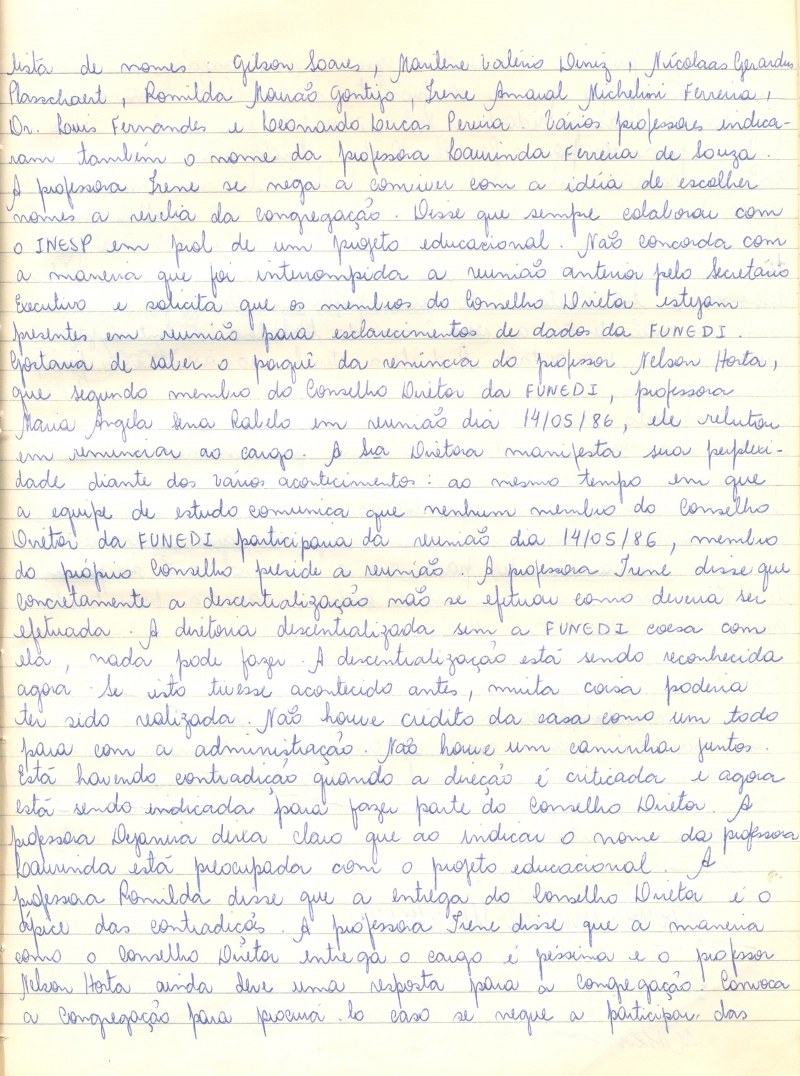 lista de nomes: Gilson Soares, Marilene Valério Diniz, Nicolaas Gerardus
Plasschaert, Romilda Mourão Gontijo, Irene Amaral Michelini Ferreira,
Dr. Luis Fernandes e Leonardo Lucas Pereira. Vários professores indica-
ram também o nome da professora Laurinda Ferreira de Souza.
A professora Irene se nega a conviver com a idéia de escolher
nomes a revelia da congregação. Disse que sempre colaborou com
o INESP em prol de um projeto educacional. Não concorda com
a maneira que foi interrompida a reunião anterior pelo Secretário
Executivo e solicita que os membros do Conselho Diretor estejam
presentes em reunião para esclarecimentos de dados da FUNEDI.
Gostaria de saber o porquê da renúncia do professor Nelson Horta,
que segundo membro do Conselho Diretor da FUNEDI, professora
Maria Angela Sena Rabelo em reunião dia 14/05/86, ele relutou
em renunciar ao cargo. A Sra Diretora manifesta sua perplexi-
dade diante dos vários acontecimentos: ao mesmo tempo em que
a equipe de estudo comunica que nenhum membro do Conselho
Diretor da FUNEDI participaria da reunião dia 14/05/86, membro
do próprio Conselho preside a reunião. A professora Irene disse que
concretamente a descentralização não se efetuou como deveria ser
efetuada. A diretoria descentralizada sem a FUNEDI coesa com
ela, nada pode fazer. A descentralização está sendo reconhecida
agora. Se isto tivesse acontecido antes, muita coisa poderia
ter sido realizada. Não houve crédito da casa como um todo
para com a administração. Não houve um caminhar juntos.
Está havendo contradição quando a direção é criticada e agora
está sendo indicada para fazer parte do Conselho Diretor. A
professora Dejanira deixa claro que ao indicar o nome da professora
Laurinda está preocupada com o projeto educacional. A
professora Romilda disse que a entrega do Conselho Diretor é o
ápice das contradiçõs. A professora Irene disse que a maneira
como o Conselho Diretor entrega o cargo é péssima e o professor
Nelson Horta ainda deve uma resposta para a congregação. Convoca
a congregação para procurá-lo caso se negue a participar das